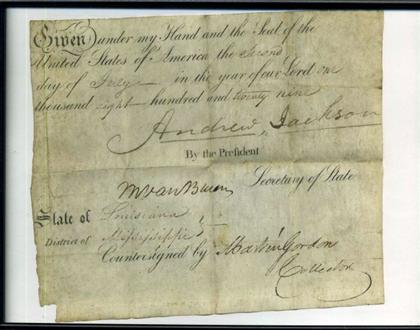 Given under my Hand and the Seal of the
United States of America the second
day of July in the year of our Lord one
thousand eight hundred and twenty nine
Andrew Jackson
By the President
M van Buren Secretary of State
State of Louisiana
District of Mississippi
Countersigned by Martin Gordon
Collector